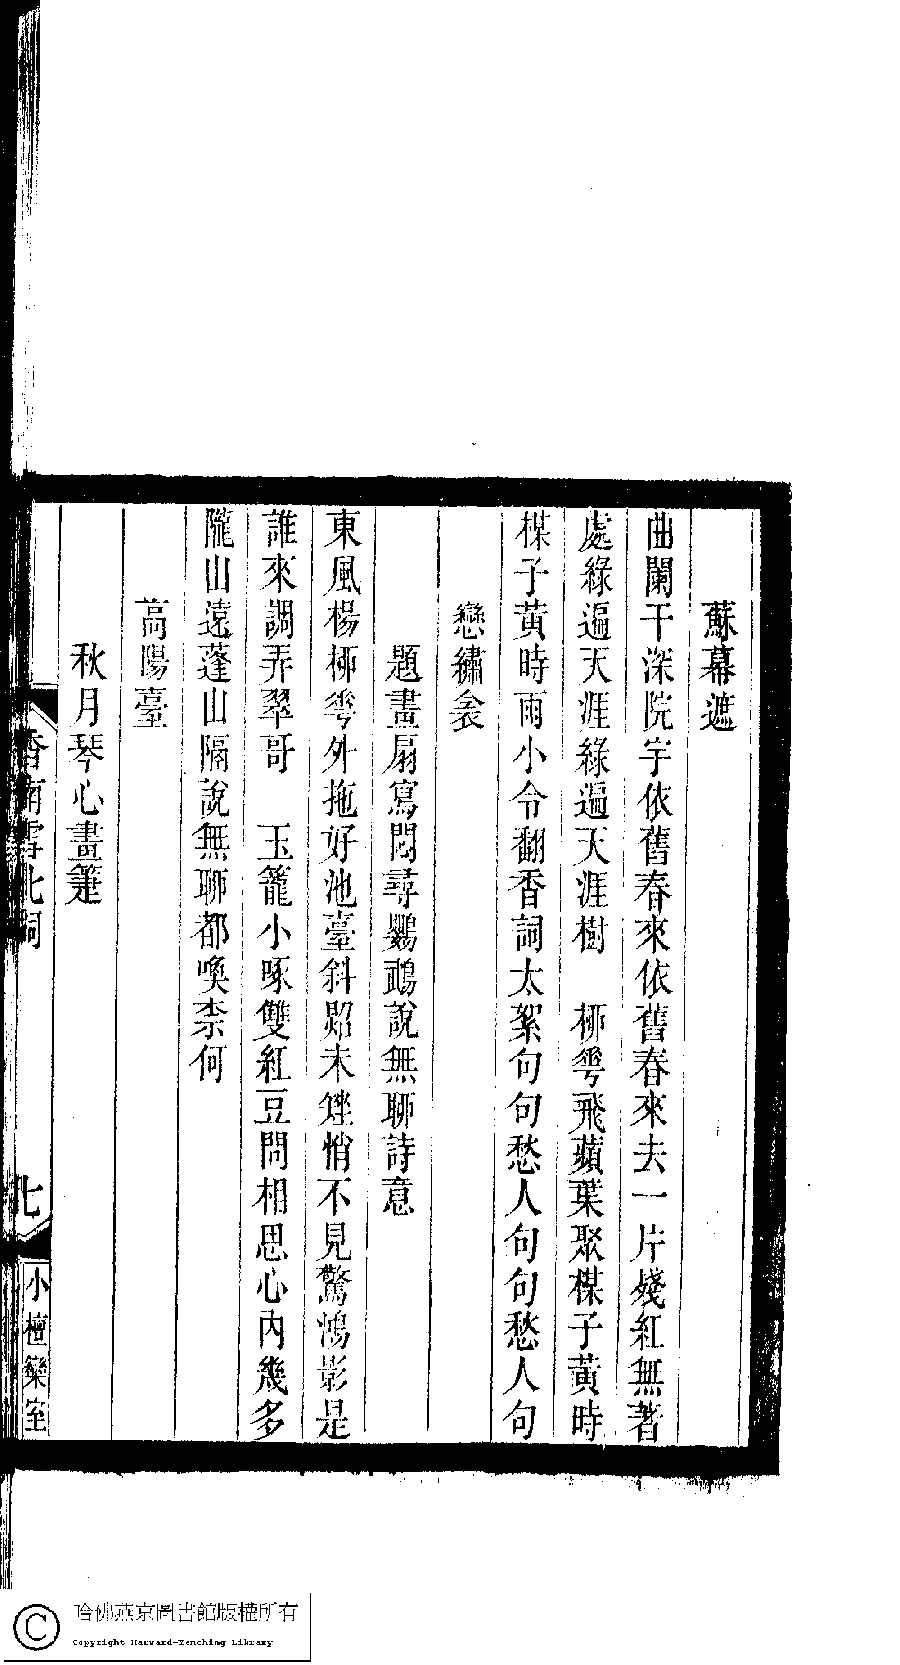 蘇幕遮
曲闌干深院宇依舊春來依舊春來去一片殘紅無著
處綠遍天涯綠遍天涯樹　桺雩飛蘋葉聚楳子黃時
楳子黃時雨小令翻香詞太絮句句愁人句句愁人句
戀繡衾
題畫扇寫悶尋鸚鵡說無聊詩意
東風楊桺雩外拖好池臺斜照未矬悄不見驚鴻影是
誰來調弄翠哥　玉籠小啄雙紅豆問相思心內幾多
隴山遠蓬山隔說無聊都喚柰何
高陽臺
秋月琴心畫箑
香南雪北詞
七
小檀欒室
哈佛燕京圖書館版權所有
Copyright Harvard-Yenching Library